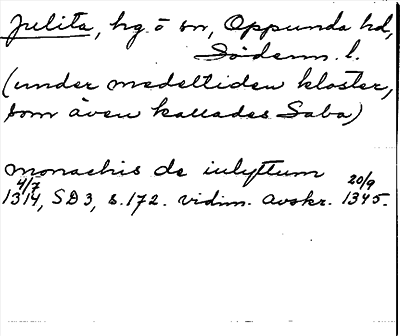 Julita, hg ō sn, Oppunda hd,
Söderm. l.
(under medeltiden kloster,
som även kallades Saba)
monachis de iulyttum
4/7 1314, SD 3, s. 172. vidim. avskr. 20/9 1345.